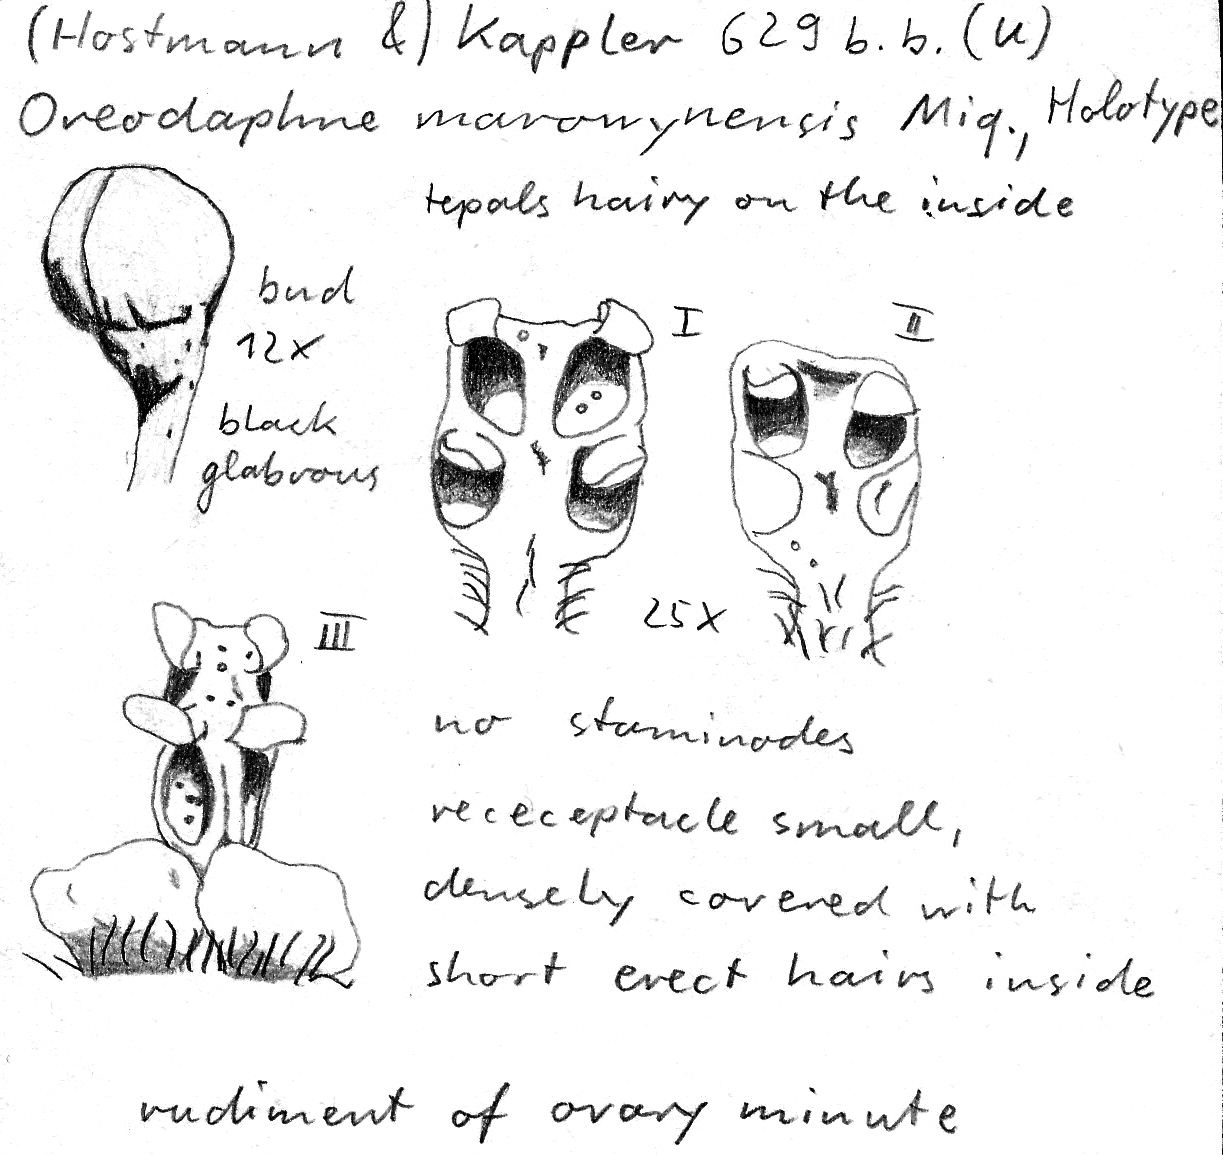 (Hostmann &) Kappler 629 b.b. (U)
Oreodaphne marowynensis Miq., Holotype
tepals hairy on the inside
bud
12x
black
glabrous
I
II
25x
III
no staminodes
receceptacle small,
densely covered with
short erect hairs inside
rudiment of ovary minute